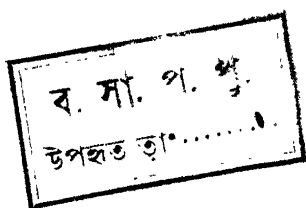 ব. সা. প. পু.
উপহৃত তাং.......